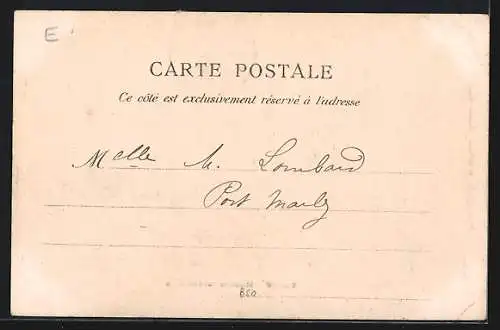 E
CARTE POSTALE
Ce côté est exclusivement réservé à l'adresse
Melle M. Lombard
Port Marly